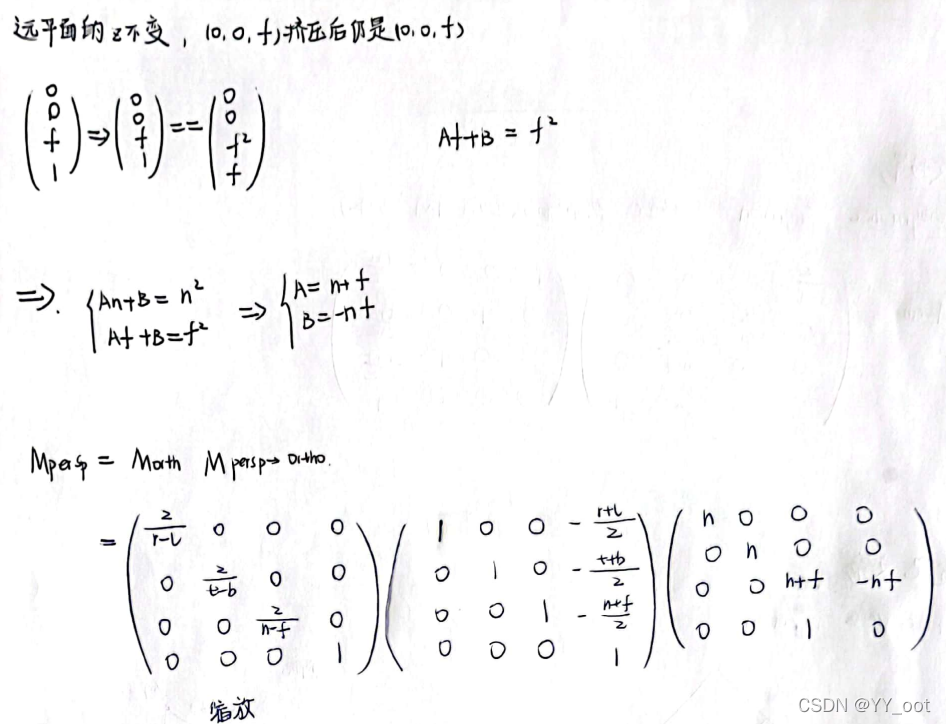 远平面的z不变，(0,0,f)挤压后仍是(0,0,f)
(0 0 f 1) ⇒ (0 0 f 1) == (0 0 f² f)
Af+B = f²
⇒. { An+B = n² Af+B=f² ⇒ { A= n+f B=-nf
Mpersp = Morth Mpersp→ortho.
= ( 2/(r-l) 0 0 0 ) ( 1 0 0 -(r+l)/2 ) ( n 0 0 0 )
( 0 2/(t-b) 0 0 ) ( 0 1 0 -(t+b)/2 ) ( 0 n 0 0 )
( 0 0 2/(n-f) 0 ) ( 0 0 1 -(n+f)/2 ) ( 0 0 n+f -nf )
( 0 0 0 1 ) ( 0 0 0 1 ) ( 0 0 1 0 )
缩放
CSDN @YY_oot